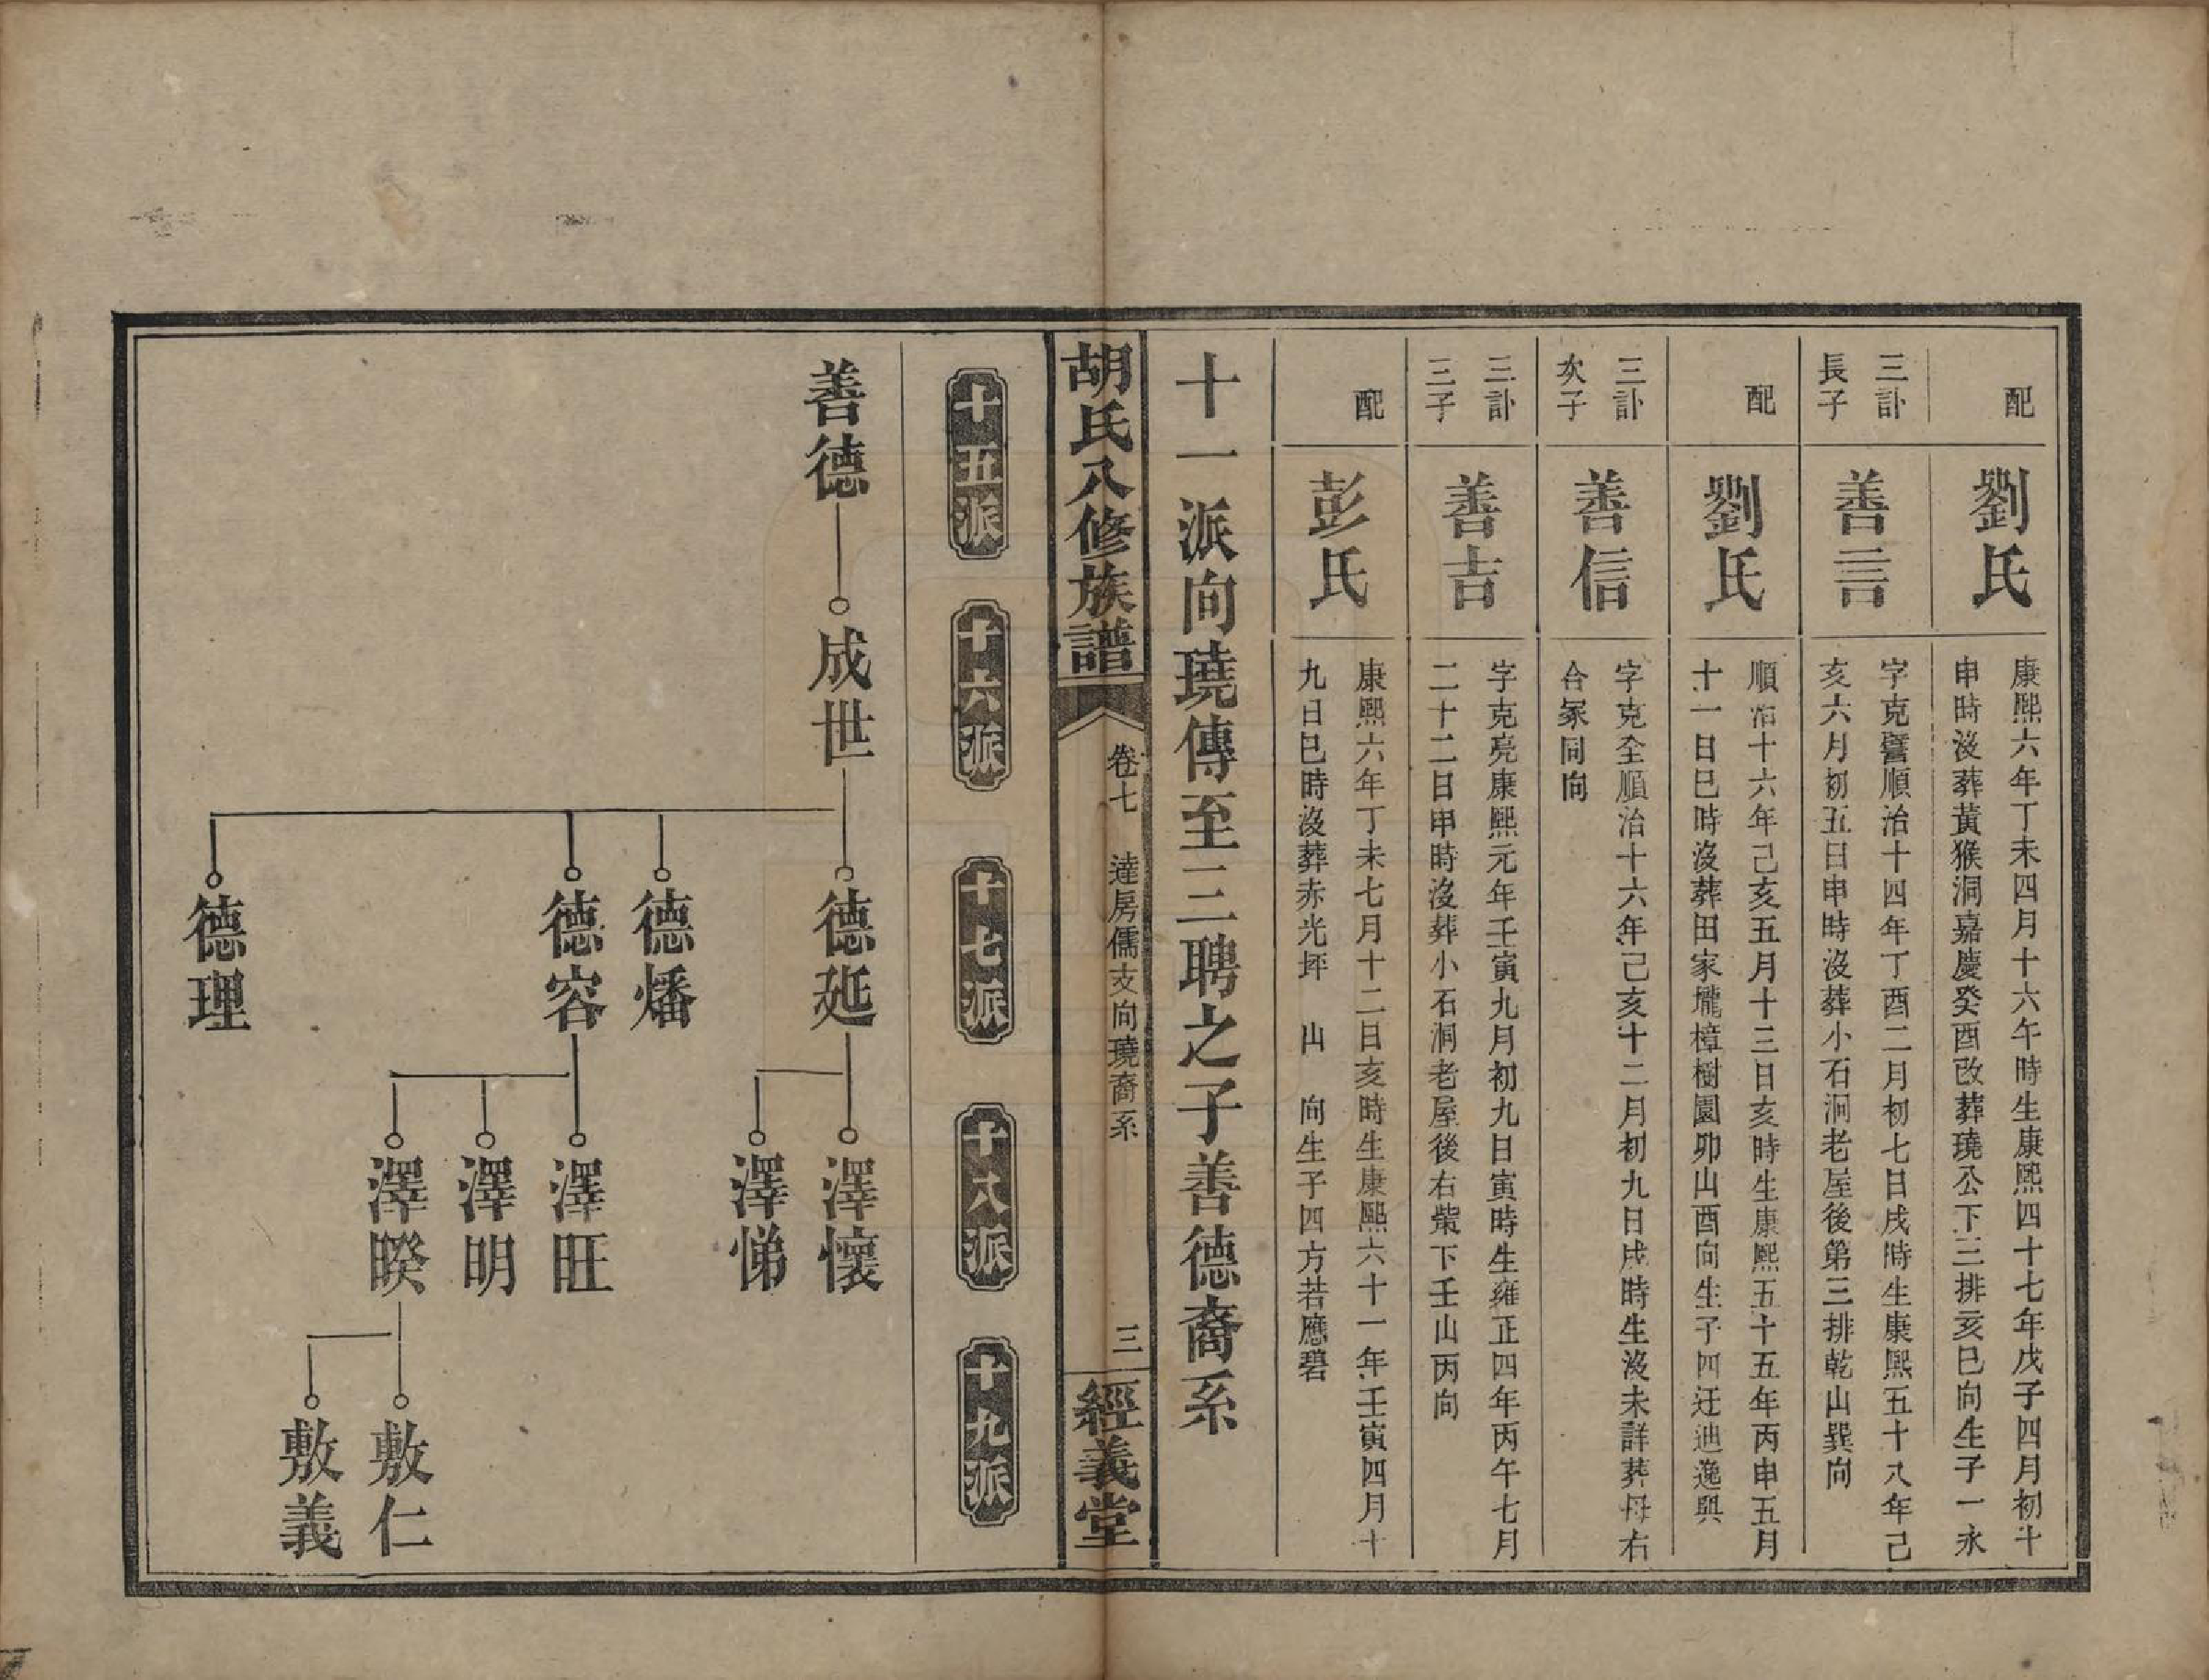 配
劉氏
康熙六年丁未四月十六午時生康熙四十七年戊子四月初十
申時沒葬黃猴洞嘉慶癸酉改葬璄公下三排亥巳向生子一永
三訃
長子
善言
字克謩順治十四年丁酉二月初七日戌時生康熙五十八年己
亥六月初五日申時沒葬小石洞老屋後第三排乾山巽向
配
劉氏
順治十六年己亥五月十三日亥時生康熙五十五年丙申五月
十一日巳時沒葬田家壠樟樹園卯山酉向生子四迁迪逸興
三訃
次子
善信
字克全順治十六年己亥十二月初九日戌時生沒未詳葬母右
合冢同向
三訃
三子
善吉
字克亮康熙元年壬寅九月初九日寅時生雍正四年丙午七月
二十二日申時沒葬小石洞老屋後右柴下壬山丙向
配
彭氏
康熙六年丁未七月十二日亥時生康熙六十一年壬寅四月十
九日巳時沒葬赤光坪 山 向生子四方若應碧
十一派向璄傳至三聘之子善德裔系
胡氏八修族譜
卷七 達房儒支向璄裔系
三
經義堂
十五派
十六派
十七派
十八派
十九派
善德
成世
德延
德燔
德容
德理
澤懷
澤悌
澤旺
澤明
澤睽
敷仁
敷義